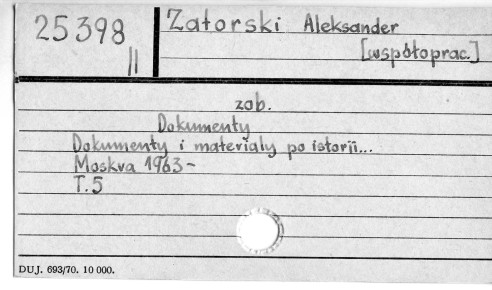 25398
II
Zatorski Aleksander
[współoprac.]
zob.
Dokumenty
Dokumenty i materialy po istorii...
Moskva 1963-
T.5
DUJ. 693/70. 10 000.